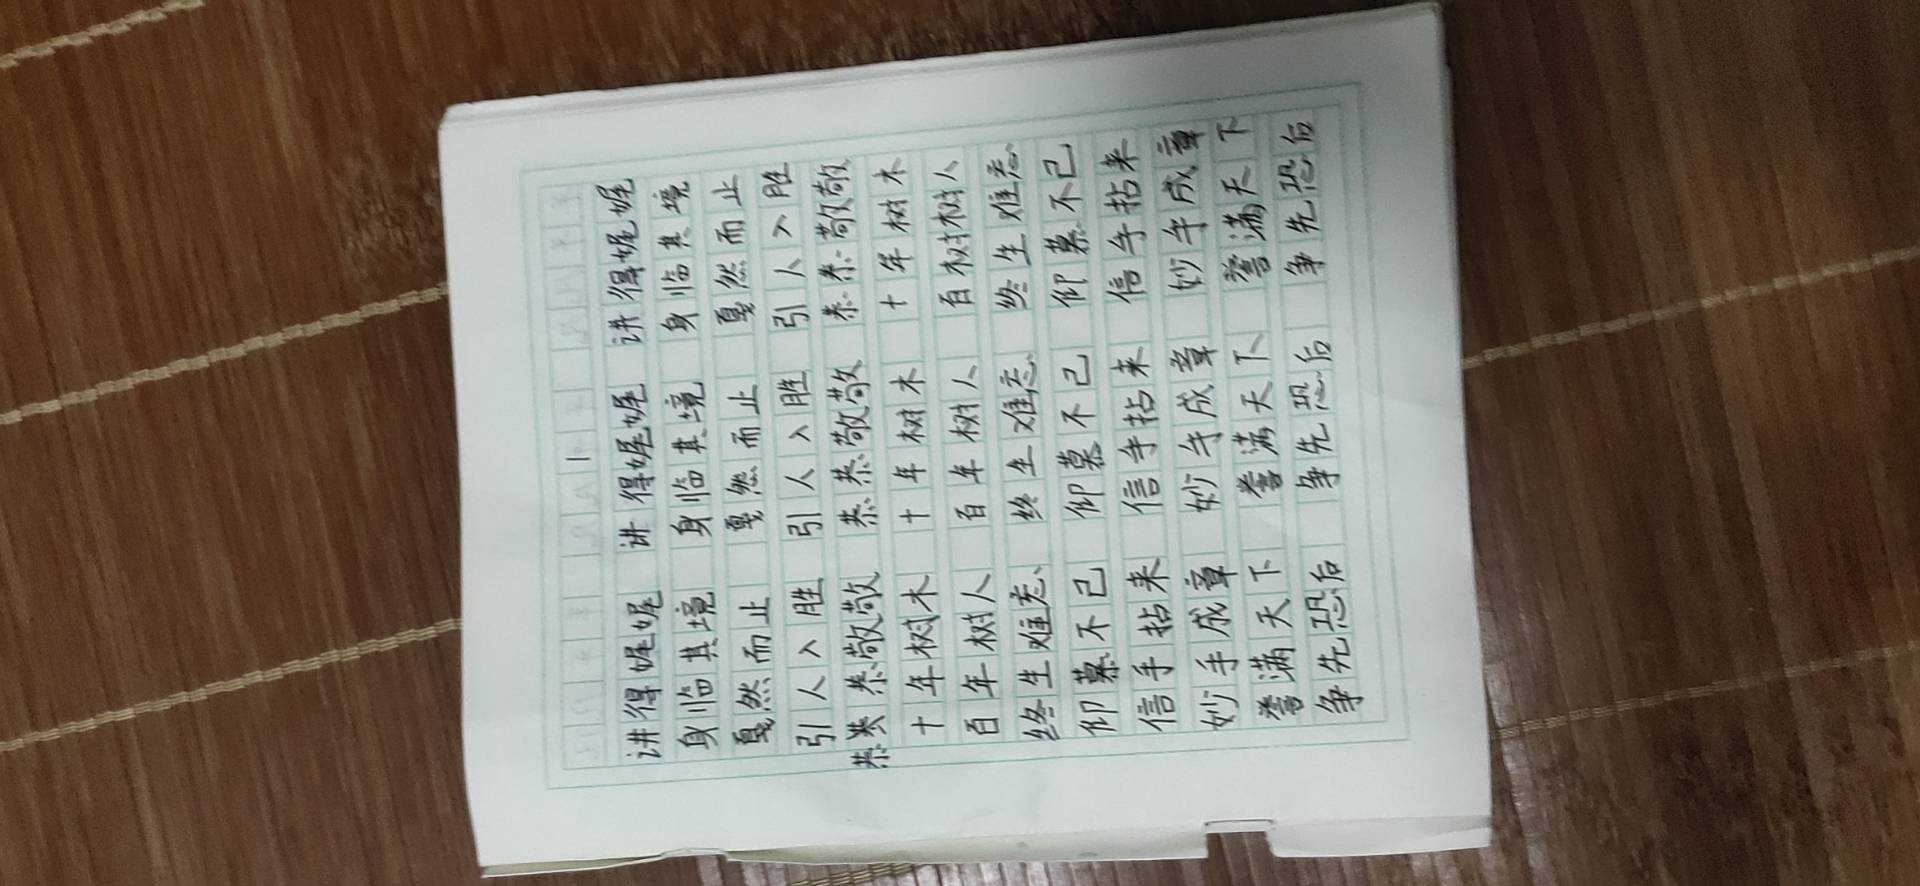 讲得娓娓 讲得娓娓 讲得娓娓
身临其境 身临其境 身临其境
戛然而止 戛然而止 戛然而止
引人入胜 引人入胜 引人入胜
恭恭敬敬 恭恭敬敬 恭恭敬敬
十年树木 十年树木 十年树木
百年树人 百年树人 百树树人
终生难忘 终生难忘 终生难忘
仰慕不已 仰慕不已 仰慕不已
信手拈来 信手拈来 信手拈来
妙手成章 妙手成章 妙手成章
誉满天下 誉满天下 誉满天下
争先恐后 争先恐后 争先恐后